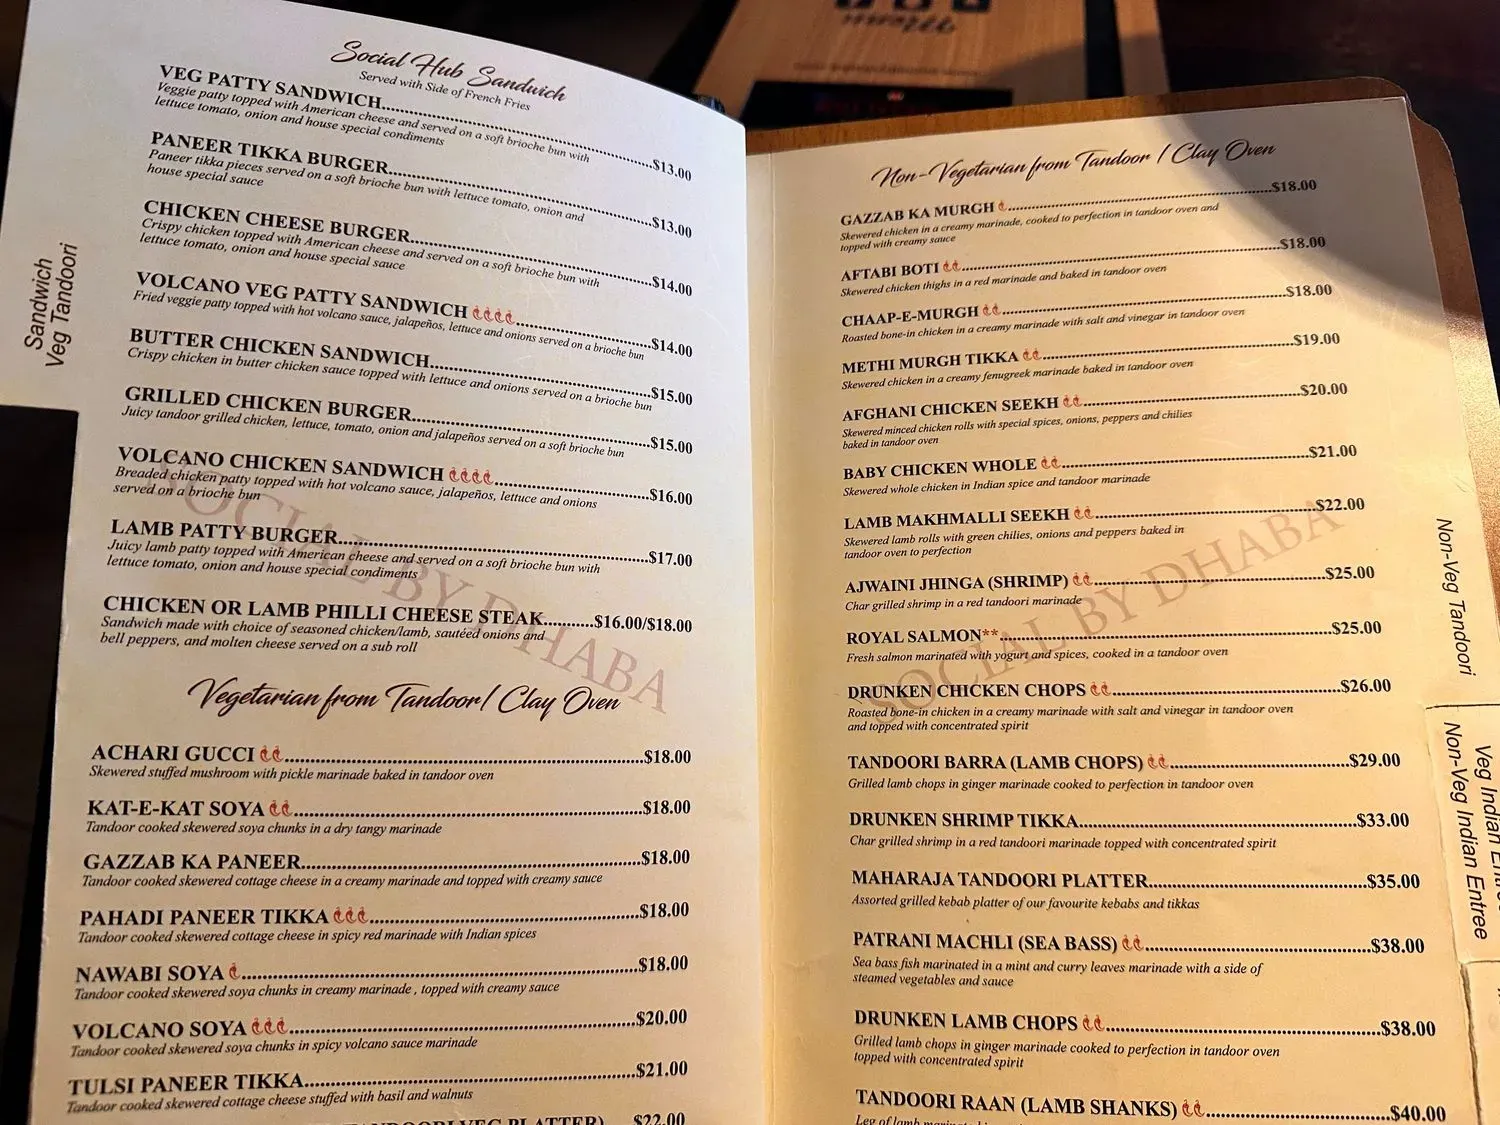 Social Hub Sandwich
Served with Side of French Fries
VEG PATTY SANDWICH....................$13.00
Veggie patty topped with American cheese and served on a soft brioche bun with
lettuce tomato, onion and house special condiments
PANEER TIKKA BURGER....................$13.00
Paneer tikka pieces served on a soft brioche bun with lettuce tomato, onion and
house special sauce
CHICKEN CHEESE BURGER....................$14.00
Crispy chicken topped with American cheese and served on a soft brioche bun with
lettuce tomato, onion and house special sauce
VOLCANO VEG PATTY SANDWICH....................$14.00
Fried veggie patty topped with hot volcano sauce, jalapeños, lettuce and onions served on a brioche bun
BUTTER CHICKEN SANDWICH....................$15.00
Crispy chicken in butter chicken sauce topped with lettuce and onions served on a brioche bun
GRILLED CHICKEN BURGER....................$15.00
Juicy tandoor grilled chicken, lettuce, tomato, onion and jalapeños served on a soft brioche bun
VOLCANO CHICKEN SANDWICH....................$16.00
Breaded chicken patty topped with hot volcano sauce, jalapeños, lettuce and onions
served on a brioche bun
LAMB PATTY BURGER....................$17.00
Juicy lamb patty topped with American cheese and served on a soft brioche bun with
lettuce tomato, onion and house special condiments
CHICKEN OR LAMB PHILLI CHEESE STEAK..........$16.00/$18.00
Sandwich made with choice of seasoned chicken/lamb, sautéed onions and
bell peppers, and molten cheese served on a sub roll
SOCIAL BY DHABA
Vegetarian from Tandoor/ Clay Oven
ACHARI GUCCI....................$18.00
Skewered stuffed mushroom with pickle marinade baked in tandoor oven
KAT-E-KAT SOYA....................$18.00
Tandoor cooked skewered soya chunks in a dry tangy marinade
GAZZAB KA PANEER....................$18.00
Tandoor cooked skewered cottage cheese in a creamy marinade and topped with creamy sauce
PAHADI PANEER TIKKA....................$18.00
Tandoor cooked skewered cottage cheese in spicy red marinade with Indian spices
NAWABI SOYA....................$18.00
Tandoor cooked skewered soya chunks in creamy marinade , topped with creamy sauce
VOLCANO SOYA....................$20.00
Tandoor cooked skewered soya chunks in spicy volcano sauce marinade
TULSI PANEER TIKKA....................$21.00
Tandoor cooked skewered cottage cheese stuffed with basil and walnuts
TANDOORI VEG PLATTER)....................$22.00
Sandwich
Veg Tandoori
Menu
Non-Vegetarian from Tandoor / Clay Oven
GAZZAB KA MURGH....................$18.00
Skewered chicken in a creamy marinade, cooked to perfection in tandoor oven and
topped with creamy sauce
AFTABI BOTI....................$18.00
Skewered chicken thighs in a red marinade and baked in tandoor oven
CHAAP-E-MURGH....................$18.00
Roasted bone-in chicken in a creamy marinade with salt and vinegar in tandoor oven
METHI MURGH TIKKA....................$19.00
Skewered chicken in a creamy fenugreek marinade baked in tandoor oven
AFGHANI CHICKEN SEEKH....................$20.00
Skewered minced chicken rolls with special spices, onions, peppers and chilies
baked in tandoor oven
BABY CHICKEN WHOLE....................$21.00
Skewered whole chicken in Indian spice and tandoor marinade
LAMB MAKHMALLI SEEKH....................$22.00
Skewered lamb rolls with green chilies, onions and peppers baked in
tandoor oven to perfection
AJWAINI JHINGA (SHRIMP)....................$25.00
Char grilled shrimp in a red tandoori marinade
ROYAL SALMON**....................$25.00
Fresh salmon marinated with yogurt and spices, cooked in a tandoor oven
DRUNKEN CHICKEN CHOPS....................$26.00
Roasted bone-in chicken in a creamy marinade with salt and vinegar in tandoor oven
and topped with concentrated spirit
TANDOORI BARRA (LAMB CHOPS)....................$29.00
Grilled lamb chops in ginger marinade cooked to perfection in tandoor oven
DRUNKEN SHRIMP TIKKA....................$33.00
Char grilled shrimp in a red tandoori marinade topped with concentrated spirit
MAHARAJA TANDOORI PLATTER....................$35.00
Assorted grilled kebab platter of our favourite kebabs and tikkas
PATRANI MACHLI (SEA BASS)....................$38.00
Sea bass fish marinated in a mint and curry leaves marinade with a side of
steamed vegetables and sauce
DRUNKEN LAMB CHOPS....................$38.00
Grilled lamb chops in ginger marinade cooked to perfection in tandoor oven
topped with concentrated spirit
TANDOORI RAAN (LAMB SHANKS)....................$40.00
Leg of lamb
SOCIAL BY DHABA
Non-Veg Tandoori
Veg Indian
Non-Veg Indian Entree